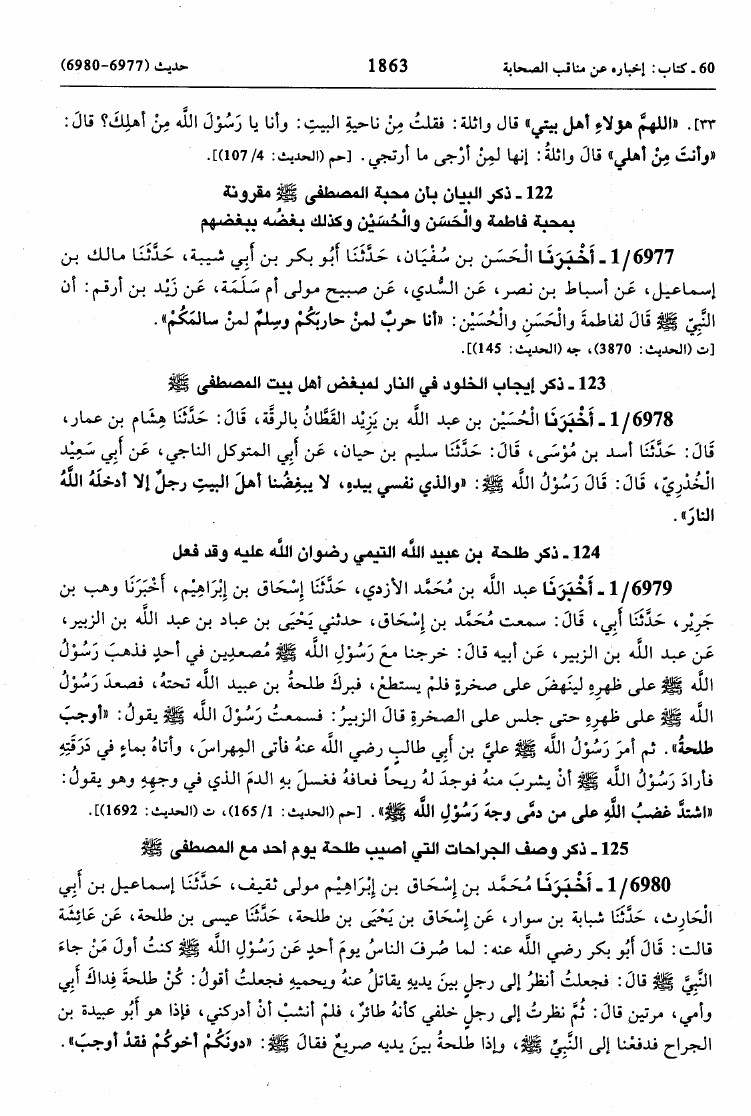 60 ـ كتاب: إخباره عن مناقب الصحابة 1863 حديث (6977-6980)
٣٣]. «اللهمَّ هؤلاءِ أهل بيتي» قال واثلة: فقلتُ مِنْ ناحيةِ البيتِ: وأنا يا رَسُوْلَ اللَّه مِنْ أهلِكَ؟ قالَ:
«وأنتَ مِنْ أهلي» قالَ واثلةُ: إنها لمِنْ أرْجى ما أرتجي. [حم (الحديث: 4/ 107)].
122 ـ ذكر البيان بأن محبة المصطفى ﷺ مقرونة
بمحبة فاطمة والْحَسَن والْحُسَيْن وكذلك بغضُه ببغضهم
1/6977 ـ أَخْبَرَنَا الْحَسَن بن سُفْيَان، حَدَّثَنَا أَبُو بكر بن أَبي شيبة، حَدَّثَنَا مالك بن
إسماعيل، عَن أسباط بن نصر، عَن السُّدي، عَن صبيح مولى أم سَلَمَة، عَن زَيْد بن أرقم: أن
النَّبِيَّ ﷺ قَالَ لفاطمةَ والْحَسَنِ والْحُسَيْنِ: «أنا حربٌ لمنْ حاربَكُمْ وسِلمٌ لمنْ سالمَكُمْ».
[ت (الحديث: 3870)، جه (الحديث: 145)].
123 ـ ذكر إيجاب الخلود في النار لمبغض أهل بيت المصطفى ﷺ
1/6978 ـ أَخْبَرَنَا الْحُسَيْن بن عبد الله بن يَزِيْد القَطَّانُ بالرقَّة، قَالَ: حَدَّثَنَا هِشَام بن عمار،
قَالَ: حَدَّثَنَا أسد بن مُوْسَى، قَالَ: حَدَّثَنَا سليم بن حيان، عَن أَبي المتوكل الناجي، عَن أَبي سَعِيْد
الْخُدْرِيّ، قَالَ: قَالَ رَسُوْلُ اللَّه ﷺ: «والذي نفسي بيدهِ، لا يبغِضُنا أهلَ البيتِ رجلٌ إلا أدخلَهُ اللَّهُ
النارَ».
124 ـ ذكر طلحة بن عبيد اللَّه التيمي رضوان اللَّه عليه وقد فعل
1/6979 ـ أَخْبَرَنَا عبد الله بن مُحَمَّد الأزدي، حَدَّثَنَا إِسْحَاق بن إِبْرَاهِيْم، أَخْبَرَنَا وهب بن
جَرِيْر، حَدَّثَنَا أَبي، قَالَ: سمعت مُحَمَّد بن إِسْحَاق، حدثني يَحْيَى بن عباد بن عبد الله بن الزبير،
عَن عبد الله بن الزبير، عَن أبيه قَالَ: خرجنا معَ رَسُوْلِ اللَّه ﷺ مُصعدِين في أحدٍ فذهبَ رَسُوْلُ
اللَّه ﷺ على ظهرِهِ لينَهضَ على صخرةٍ فلمْ يستطعْ، فبركَ طلحةُ بن عبيد الله تحتهُ، فصعدَ رَسُوْلُ
اللَّه ﷺ على ظهرِهِ حتى جلس على الصخرةِ قالَ الزبيرُ: فسمعتُ رَسُوْلَ اللَّه ﷺ يقولُ: «أوجبَ
طلحةُ». ثم أمرَ رَسُوْلُ اللَّه ﷺ عليَّ بن أَبي طالبٍ رضي الله عنهُ فأتى المِهراسَ، وأتاهُ بماءٍ في دَرَقَتِهِ
فأرادَ رَسُوْلُ اللَّه ﷺ أنْ يشربَ منهُ فوجدَ لهُ ريحاً فعافهُ فغسلَ بهِ الدمَ الذي في وجههِ وهو يقولُ:
«اشتدَّ غضبُ اللَّهِ على من دمَّى وجهَ رَسُوْلِ اللَّه ﷺ». [حم (الحديث: 1/ 165)، ت (الحديث: 1692)].
125 ـ ذكر وصف الجراحات التي أصيب طلحة يوم أحد مع المصطفى ﷺ
1/6980 ـ أَخْبَرَنَا مُحَمَّد بن إِسْحَاق بن إِبْرَاهِيْم مولى ثقيف، حَدَّثَنَا إسماعيل بن أَبي
الْحَارِث، حَدَّثَنَا شبابة بن سوار، عَن إِسْحَاق بن يَحْيَى بن طلحة، حَدَّثَنَا عيسى بن طلحة، عَن عَائِشَة
قالت: قَالَ أَبُو بكر رضي الله عنه: لما صُرفَ الناسُ يومَ أحدٍ عَن رَسُوْلِ اللَّه ﷺ كنتُ أولَ مَنْ جاءَ
النَّبِيَّ ﷺ قَالَ: فجعلتُ أنظرُ إلى رجلٍ بينَ يديهِ يقاتلُ عنهُ ويحميهِ فجعلتُ أقولُ: كُنْ طلحةَ فِداكَ أبي
وأمي، مرتين قَالَ: ثُمَّ نظرتُ إلى رجلٍ خلفي كأنهُ طائرٌ، فلمْ أنشبْ أنْ أدركني، فإذا هو أَبُو عبيدة بن
الجراح فدفعْنا إلى النَّبِيِّ ﷺ، وإذا طلحةُ بينَ يديه صريعٌ فقالَ ﷺ: «دونَكُمْ أخوكُمْ فقدْ أوجبَ».